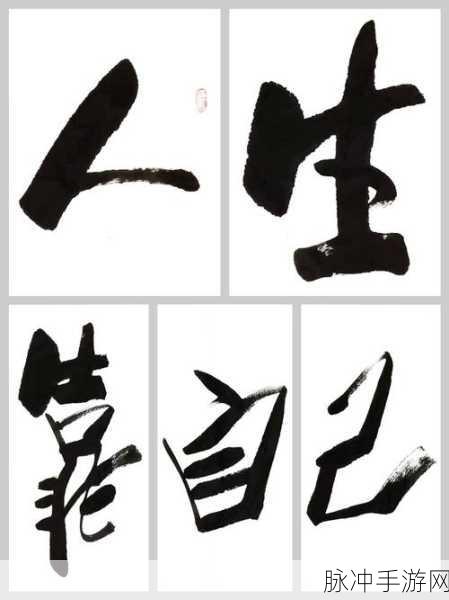 人生
靠自己
脉冲手游网